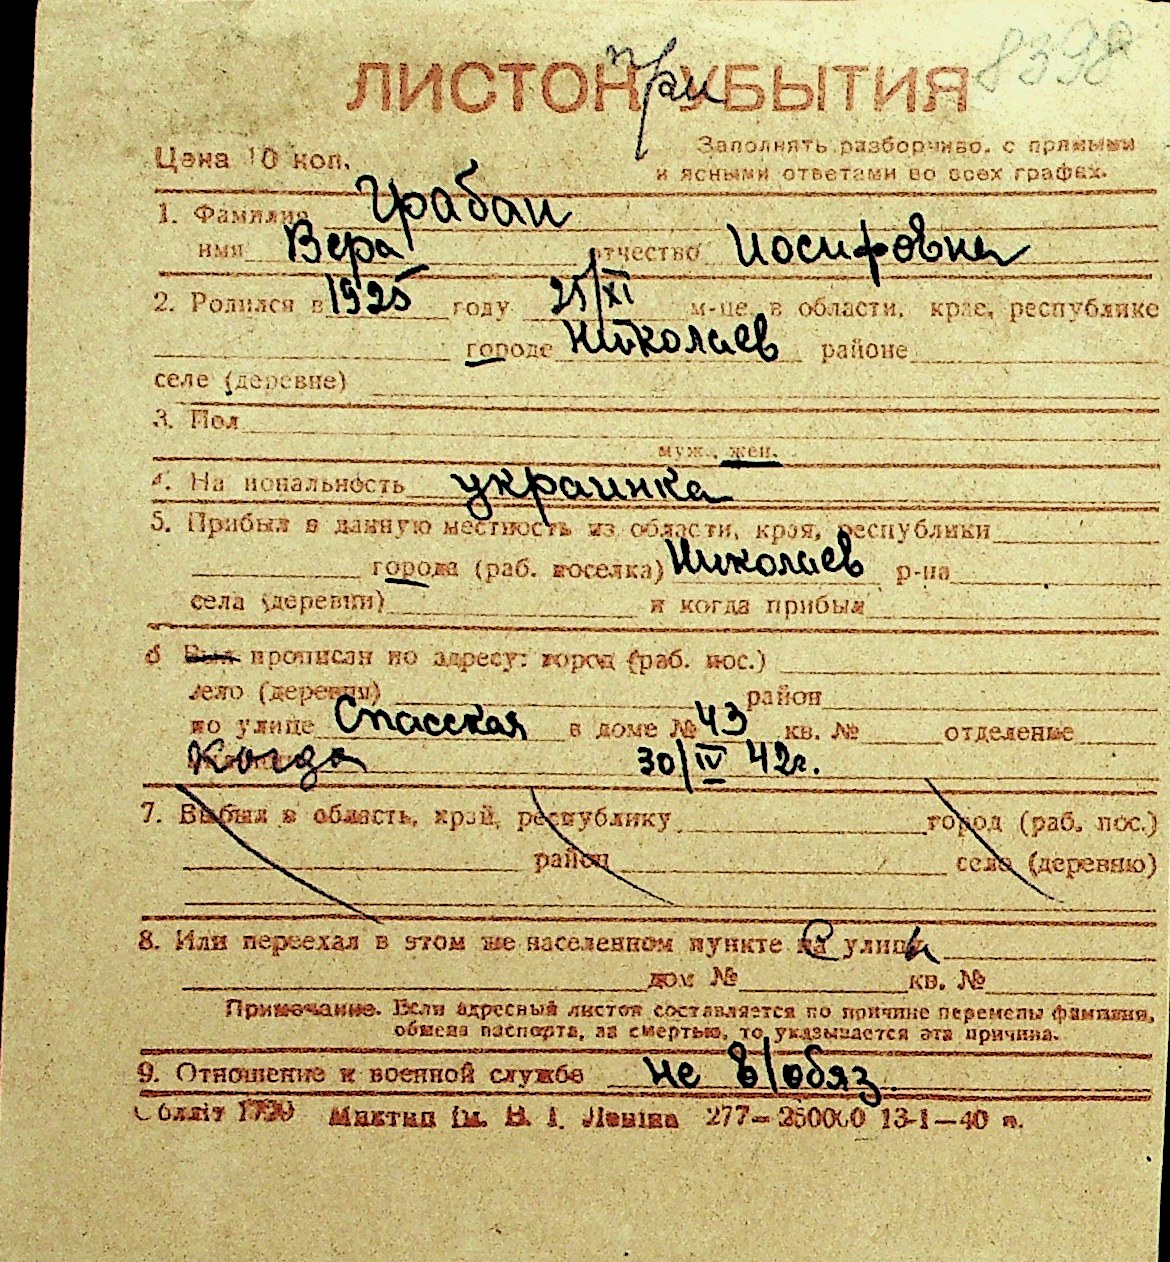 8398
ЛИСТОК при УБЫТИЯ
Цена 10 коп.
Заполнять разборчиво, с прямыми
и ясными ответами во всех графах.
1. Фамилия Грабан
имя Вера отчество Иосифовна
2. Родился в 1925 году 25/XI м-це, в области, крае, республике
городе Николаев районе
селе (деревне)
3. Пол
муж., жен.
4. Национальность украинка
5. Прибыл в данную местность из области, края, республики
города (раб. поселка) Николаев р-на
села (деревни) и когда прибыл
6 Был прописан по адресу: город (раб. пос.)
село (деревня) район
по улице Спасская в доме № 43 кв. № отделение
Когда 30/IV 42г.
7. Выбыл в область, край, республику город (раб. пос.)
район село (деревню)
8. Или переехал в этом же населенном пункте с улицы
дом № кв. №
Примечание. Если адресный листок составляется по причине перемены фамилии,
обмена паспорта, за смертью, то указывается эта причина.
9. Отношение к военной службе не в/обяз.
Облліт Миктип ім. В. І. Леніна 277—250000 13-1—40 п.